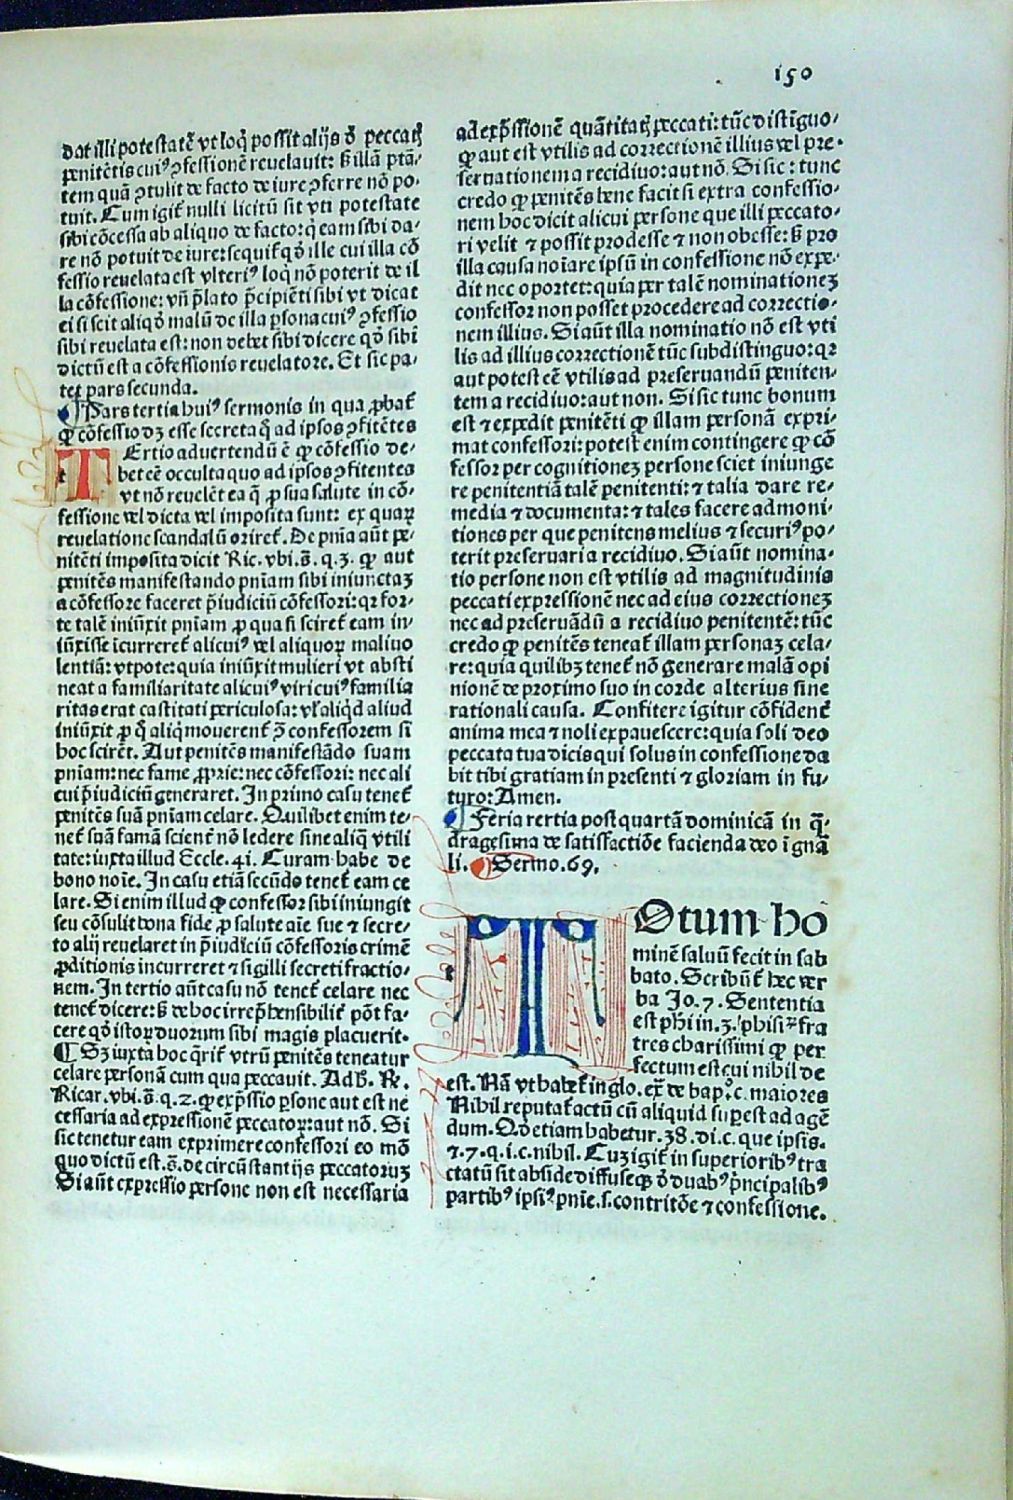 150
dat illi potestatē vt loqͥ possit alijs ð peccatꝭ
penitētis cuiꝰ ꝯfessionē reuelauit: ß illā ptā-
tem quā ꝯtulit de facto de iure ꝯferre nō po-
tuit. Cum igit᷑ nulli licitū sit vti potestate
sibi cōcessa ab aliquo de facto: qͥ eam sibi da-
re nō potuit de iure: sequit᷑ qð ille cui illa cō
fessio reuelata est vlteriꝰ loqͥ nō poterit de il
la cōfessione: vn̄ p̄lato p̄cipiēti sibi vt dicat
ei si scit aliqð malū de illa ꝑsona cuiꝰ ꝯfessio
sibi reuelata est: non debet sibi dicere qð sibi
dictū est a cōfessionis reuelatore. Et sic pa-
tet pars secunda.
¶ Pars tertia huiꝰ sermonis in qua ꝓbat᷑
ꝙ cōfessio dꝫ esse secreta q̄ ad ipsos ꝯfitētes
TErtio aduertendū ē ꝙ cōfessio de-
bet eē occulta quo ad ipsos ꝯfitentes
vt nō reuelēt ea q̄ ꝓ sua salute in cō-
fessione vel dicta vel imposita sunt: ex quaꝝ
reuelatione scandalū oriret᷑. De pnīa aūt pe-
nitēti imposita dicit Ric. vbi.ß. q. 3. ꝙ aut
penitēs manifestando pnīam sibi iniunctaꝫ
a cōfessore faceret p̄iudiciū cōfessori: qꝛ for-
te talē iniūxit pniam ꝓ qua si sciret᷑ eam in-
iūxisse īcurreret᷑ alicuiꝰ vel aliquoꝝ maliuo
lentiā: vtpote: quia iniūxit mulieri vt absti
neat a familiaritate alicuiꝰ viri cuiꝰ familia
ritas erat castitati periculosa: vl᷑ aliqͥd aliud
iniūxit ꝓ qͦ aliqͥ mouerent᷑ ꝯ̄ confessorem si
hoc scirēt. Aut penitēs manifestādo suam
pniam: nec fame ꝓprie: nec cōfessori: nec ali
cui p̄iudiciū generaret. In primo casu tenet᷑
penitēs suā pniam celare. Quilibet enim te-
net᷑ suā famā scient᷑ nō ledere sine aliqͣ vtili
tate: iuxta illud Eccle. 41. Curam habe de
bono noīe. In casu etiā secūdo tenet᷑ eam ce
lare. Si enim illud ꝙ confessor sibi iniungit
seu cōsulit bona fide ꝓ salute aīe sue ⁊ secre-
to alij reuelaret in p̄iudiciū cōfessoris crimē
ꝓditionis incurreret ⁊ sigilli secreti fractio-
nem. In tertio aūt casu nō tenet᷑ celare nec
tenet᷑ dicere: ß de hoc irrep̄hensibilit᷑ pōt fa-
cere qð istoꝝ duorum sibi magis placuerit.
¶ Sꝫ iuxta hoc q̄rit᷑ vtrū penitēs teneatur
celare personā cum qua peccauit. Ad ħ. Rͤ.
Ricar. vbi.ß. q. 2. ꝙ exp̄ssio ꝑsone aut est ne
cessaria ad expressionē peccatoꝝ: aut nō. Si
sic tenetur eam exprimere confessori eo mō
quo dictū est.ß. de circūstantijs peccatoruꝫ
Si aūt expressio persone non est necessaria
ad exp̄ssionē quātitatꝭ peccati: tūc distīguo-
ꝙ aut est vtilis ad correctionē illius vel pre-
seruationem a recidiuo: aut nō. Si sic: tunc
credo ꝙ penitēs bene facit si extra confessio-
nem hoc dicit alicui persone que illi peccato-
ri velit ⁊ possit prodesse ⁊ non obesse: ß pro
illa causa noīare ipsū in confessione nō expe-
dit nec oportet: quia per talē nominationeꝫ
confessor non posset procedere ad correctio-
nem illius. Si aūt illa nominatio nō est vti
lis ad illius correctionē tūc subdistinguo: qꝛ
aut potest eē vtilis ad preseruandū peniten-
tem a recidiuo: aut non. Si sic tunc bonum
est ⁊ expedit penitēti ꝙ illam personā expri-
mat confessori: potest enim contingere ꝙ cō
fessor per cognitioneꝫ persone sciet iniunge
re penitentiā talē penitenti: ⁊ talia dare re-
media ⁊ documenta: ⁊ tales facere admoni-
tiones per que penitens melius ⁊ securiꝰ po-
terit preseruari a recidiuo. Si aūt nomina-
tio persone non est vtilis ad magnitudinis
peccati expressionē nec ad eius correctioneꝫ
nec ad preseruādū a recidiuo penitentē: tūc
credo ꝙ penitēs teneat᷑ illam personaꝫ cela-
re: quia quilibꝫ tenet᷑ nō generare malā opi
nionē de proximo suo in corde alterius sine
rationali causa. Confitere igitur cōfident᷑
anima mea ⁊ noli expauescere: quia soli deo
peccata tua dicis qui solus in confessione da
bit tibi gratiam in presenti ⁊ gloriam in fu-
turo: Amen.
¶ Feria rertia post quartā dominicā in q̄-
dragesima de satisfactiōe facienda deo ī gnā
li. Sermo. 69.
TOtum ho
minē saluū fecit in sab
bato. Scribūt᷑ hec ver
ba Jo. 7. Sententia
est phi in. 3. phisiꝝ fra
tres charissimi ꝙ per
fectum est cui nihil de
est. Nā vt habet᷑ in glo. ex̄ de bap. c. maiores
Nihil reputat᷑ actū cū aliquid suꝑest ad agē
dum. Qð etiam habetur. 38. di. c. que ipsis.
⁊. 7. q. i. c. nihil. Cuꝫ igit᷑ in superioribꝰ tra
ctatū sit abside diffuseqꝫ ð duabꝰ p̄ncipalibꝰ
partibꝰ ipsiꝰ pnīe. s. contritōe ⁊ confessione.